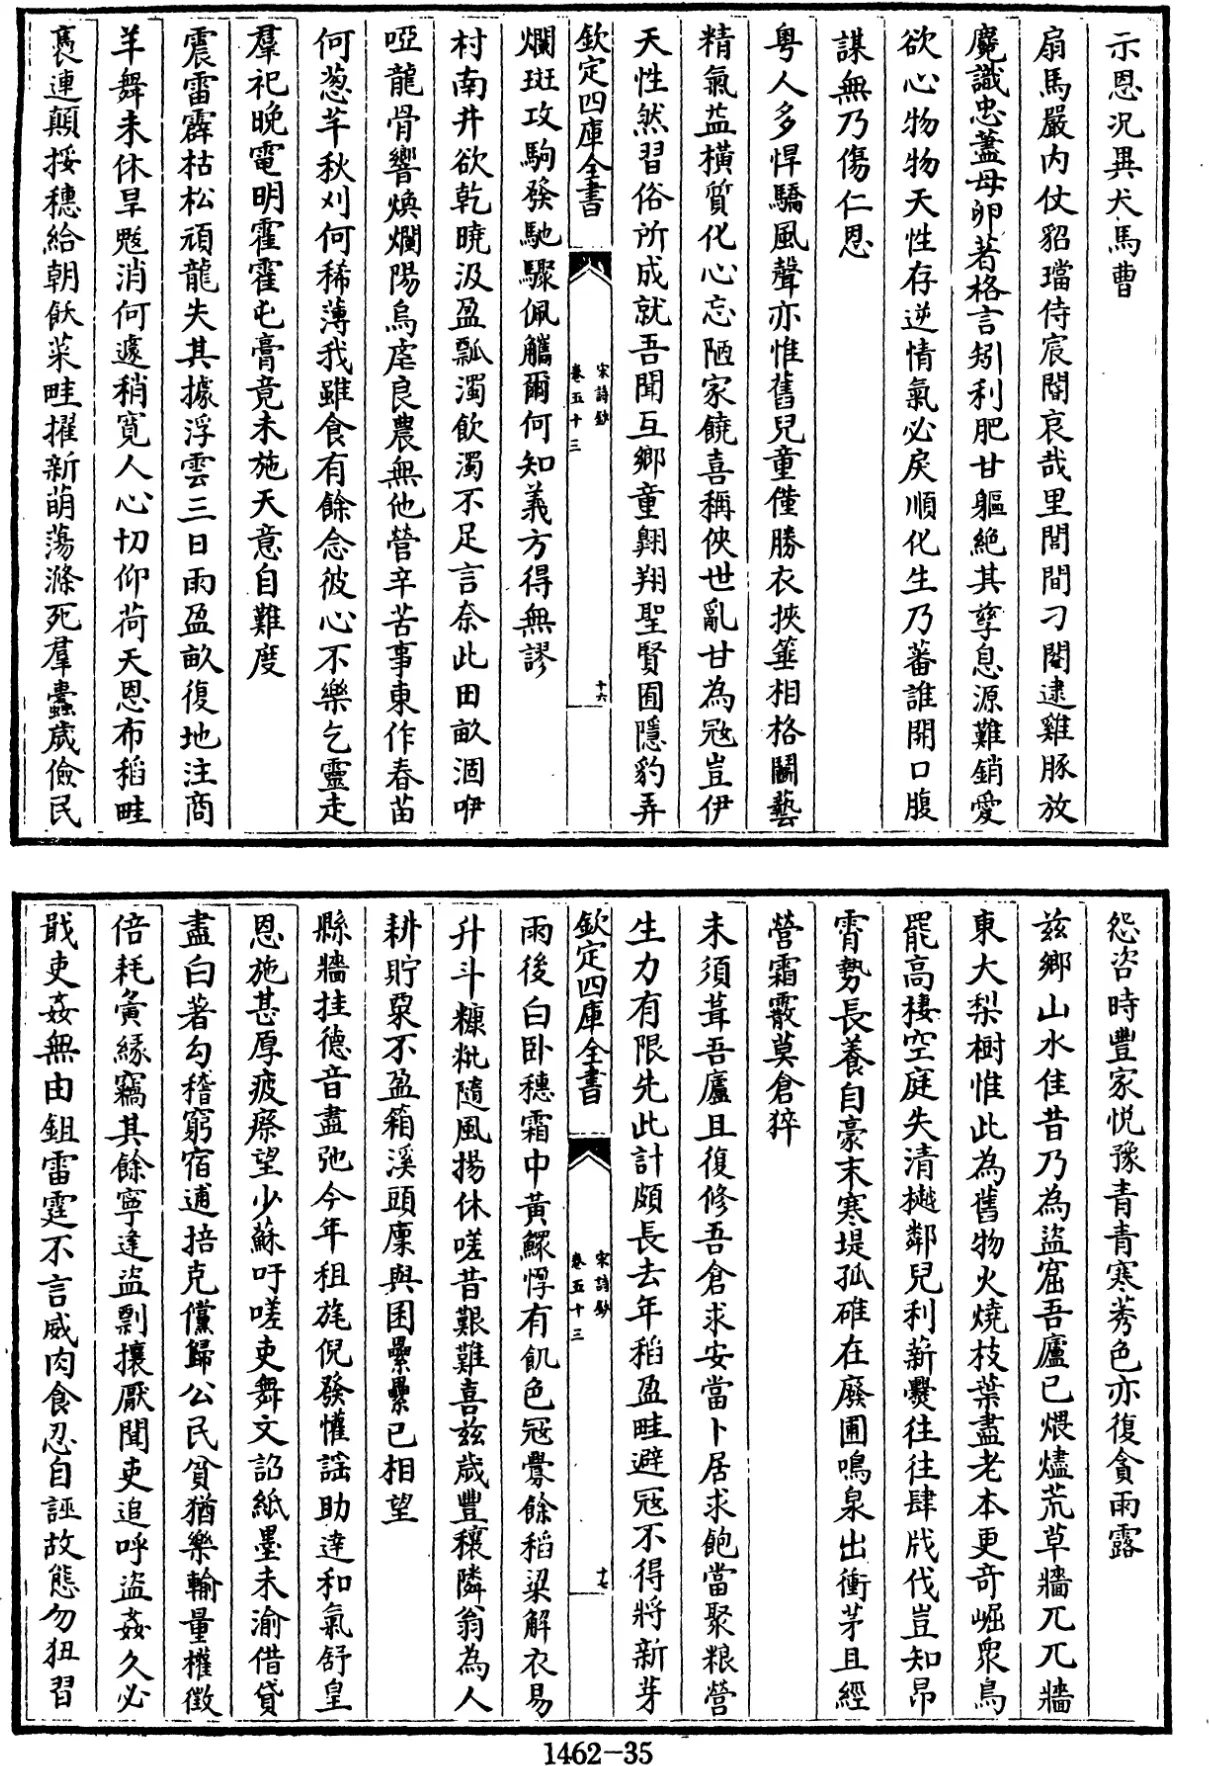 示恩況異犬馬曹
扇馬嚴内仗貂璫侍宸閽哀哉里閭間刁閹逮雞豚放
麑識忠藎毋卵著格言矧利肥甘軀絶其孳息源難銷愛
欲心物物天性存逆情氣必戾順化生乃蕃誰開口腹
謀無乃傷仁恩
粤人多悍驕風聲亦惟舊兒童僅勝衣挾箠相格鬭藝
精氣益橫質化心忘陋家饒喜稱俠世亂甘為冦豈伊
天性然習俗所成就吾聞互鄉童翺翔聖賢囿隱豹弄
欽定四庫全書
宋詩鈔
卷五十三
十六
斕斑攻駒發馳驟佩觿爾何知義方得無謬
村南井欲乾曉汲盈瓢濁飲濁不足言奈此田畝涸咿
啞龍骨響煥爛陽烏虐良農無他營辛苦事東作春苗
何葱芊秋刈何稀薄我雖食有餘念彼心不樂乞靈走
羣祀晚電明霍霍屯膏竟未施天意自難度
震雷霹枯松頑龍失其據浮雲三日雨盈畝復地注商
羊舞未休旱魃消何遽稍寛人心切仰荷天恩布稻畦
裛連顛挼穗給朝飫菜畦擢新萌蕩滌死羣蠹歲儉民
怨咨時豐家悦豫青青寒莠色亦復貪雨露
兹鄉山水佳昔乃為盜窟吾廬已煨燼荒草牆兀兀牆
東大梨樹惟此為舊物火燒枝葉盡老本更奇崛衆鳥
罷高棲空庭失清樾鄰兒利薪爨往往肆戕伐豈知昂
霄勢長養自豪末寒堤孤碓在廢圃鳴泉出衝茅且經
營霜霰莫倉猝
未須葺吾廬且復修吾倉求安當卜居求飽當聚粮營
生力有限先此計頗長去年稻盈畦避冦不得將新芽
欽定四庫全書
宋詩鈔
卷五十三
十七
雨後白卧穗霜中黄鰥惸有飢色冦釁餘稻粱解衣易
升斗糠粃隨風揚休嗟昔艱難喜兹歲豐穰隣翁為人
耕貯粟不盈箱溪頭廩與囷纍纍已相望
縣牆挂德音盡弛今年租旄倪發懽謡助達和氣舒皇
恩施甚厚疲瘵望少蘇吁嗟吏舞文詔紙墨未渝借貸
盡白著勾稽窮宿逋掊克儻歸公民貧猶樂輸量權徴
倍耗夤緣竊其餘寧逢盜剽攘厭聞吏追呼盜姦久必
戢吏姦無由鉏雷霆不言威肉食忍自誣故態勿狃習
1462-35